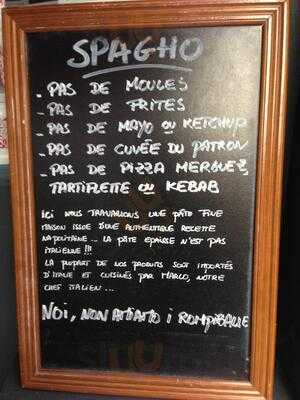 SPAGHO
- PAS DE MOULES
- PAS DE FRITES
- PAS DE MAYO OU KETCHUP
- PAS DE CUVÉE DU PATRON
- PAS DE PIZZA MERGUEZ,
TARTIFLETTE OU KEBAB
ICI NOUS TRAVAILLONS UNE PÂTE FINE
MAISON ISSUE D'UNE AUTHENTIQUE RECETTE
NAPOLITAINE... LA PÂTE ÉPAISSE N'EST PAS
ITALIENNE !!!
LA PLUPART DE NOS PRODUITS SONT IMPORTÉS
D'ITALIE ET CUISINÉS PAR MARCO, NOTRE
CHEF ITALIEN...
NOI, NON AMIAMO I ROMPIBALLE